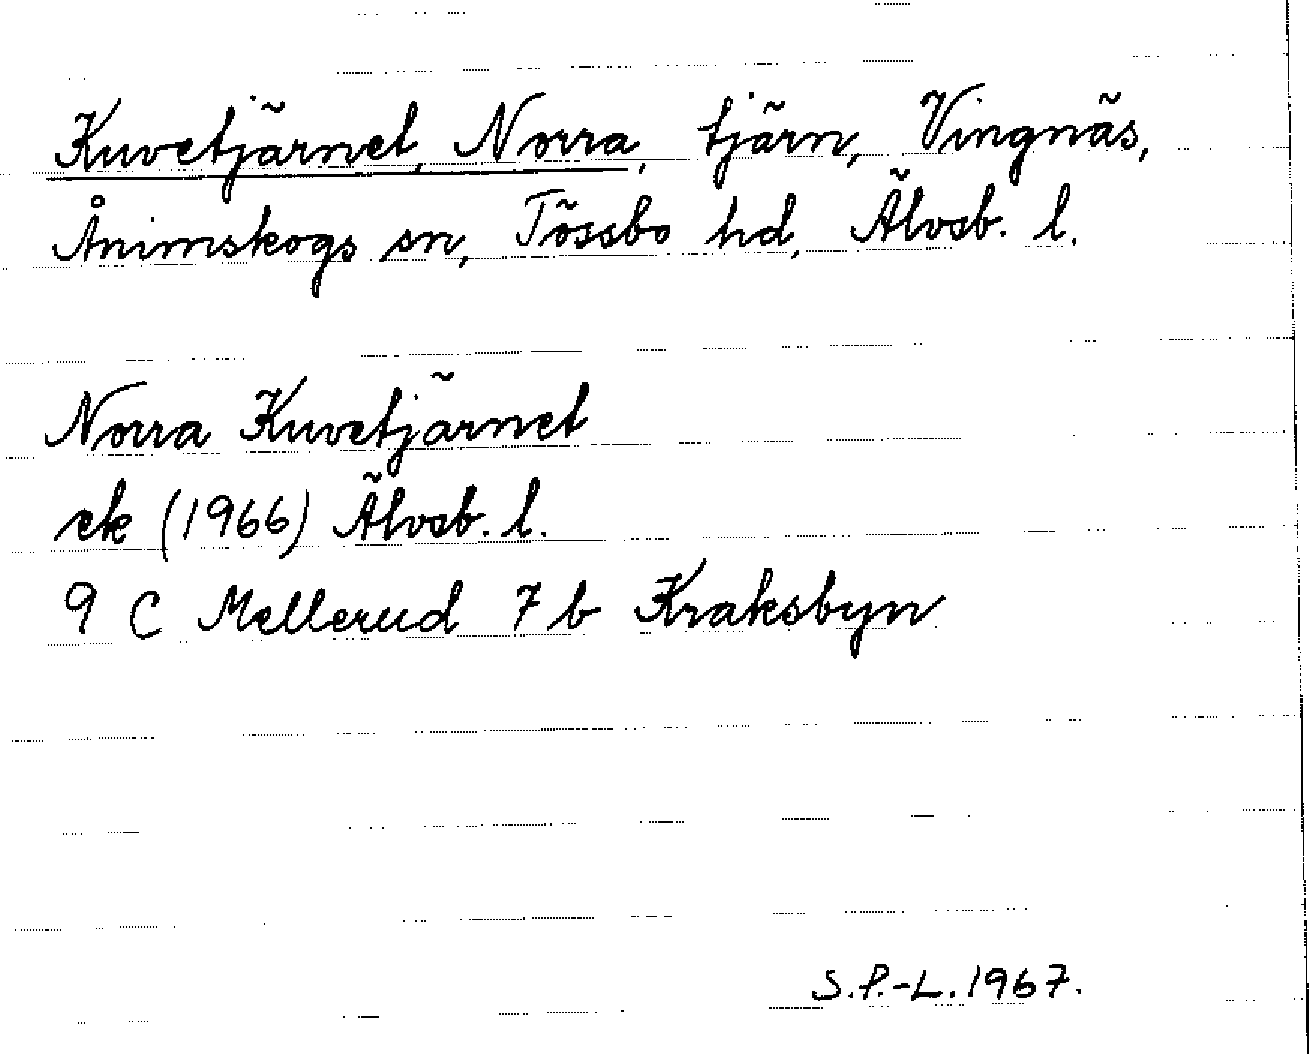 Kuvetjärnet, Norra, tjärn, Vingnäs,
Ånimskogs sn, Tössbo hd, Älvsb. l.
Norra Kuvetjärnet
ek (1966) Älvsb. l.
9 C Mellerud 7 b Kraksbyn
S.P.-L. 1967.